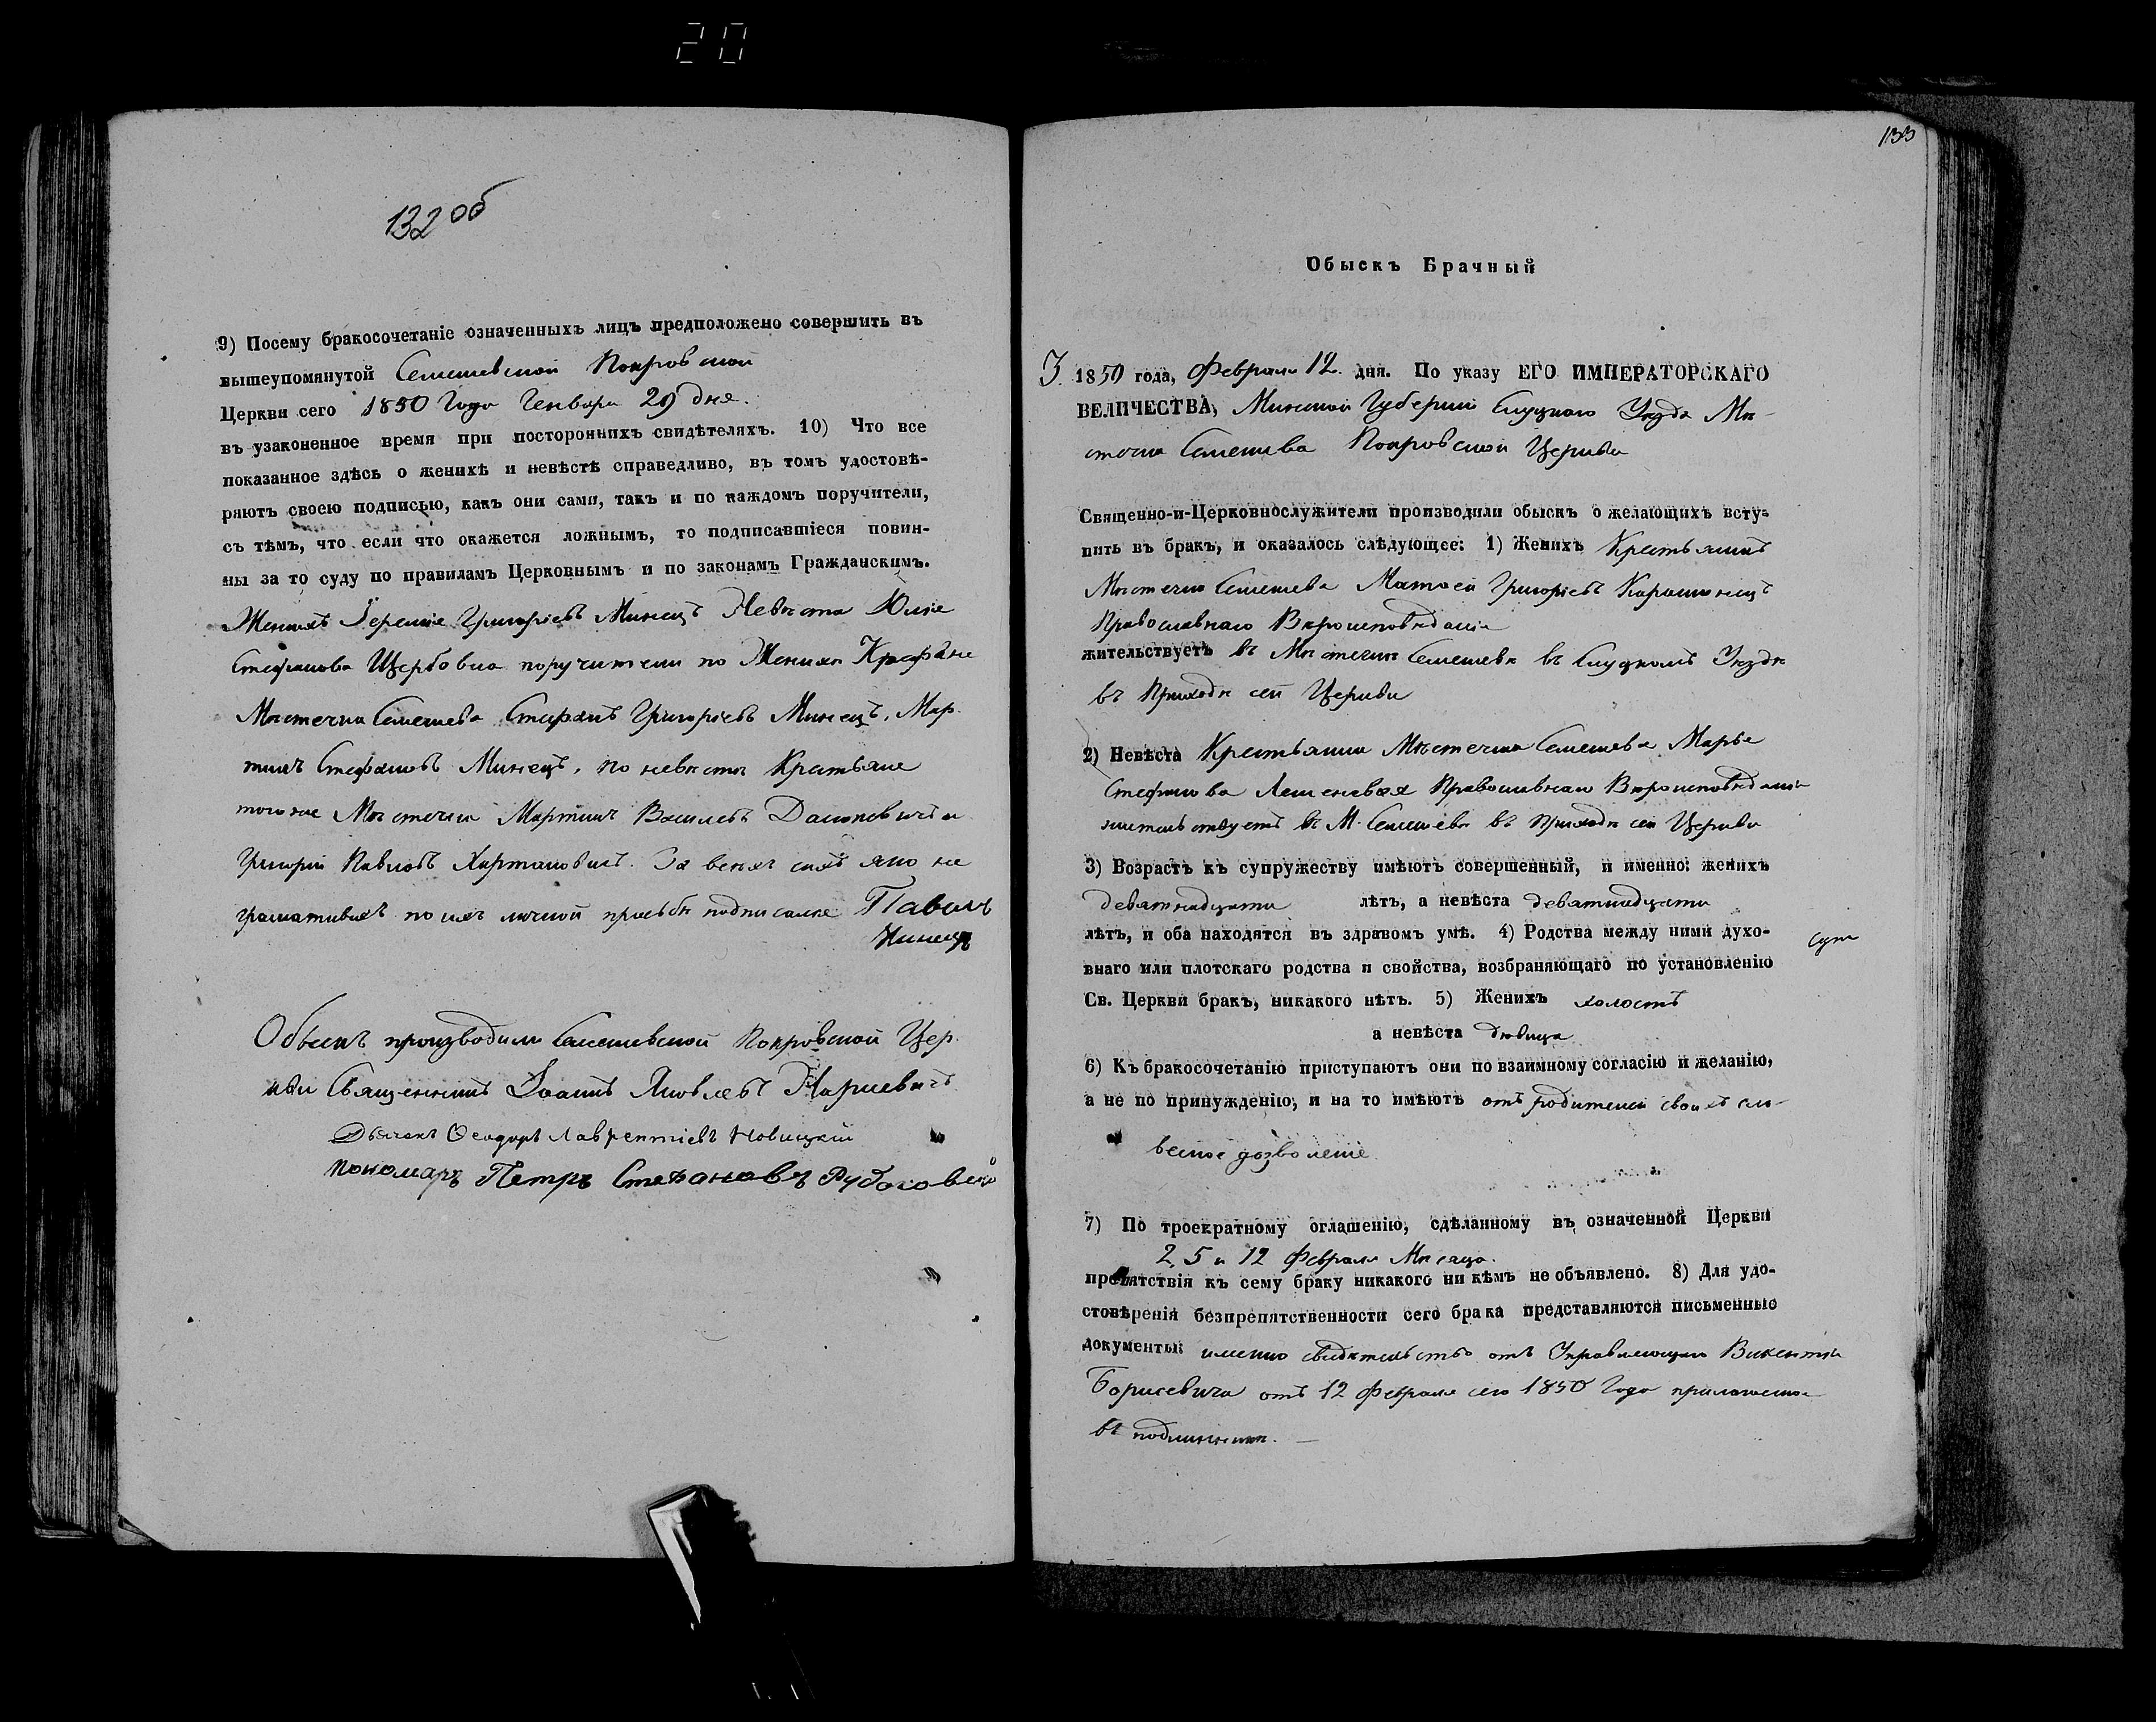 20
132 об
9) Посему бракосочетаніе означенныхъ лицъ предположено совершить въ
вышеупомянутой Семежевской Покровской
Церкви сего 1850 Года Генваря 29 дня.
въ узаконенное время при постороннихъ свидѣтеляхъ. 10) Что все
показанное здѣсь о женихѣ и невѣстѣ справедливо, въ томъ удостовѣ-
ряютъ своею подписью, какъ они сами, такъ и по каждомъ поручители,
съ тѣмъ, что если что окажется ложнымъ, то подписавшіеся повин-
ны за то суду по правиламъ Церковнымъ и по законамъ Гражданскимъ.
Женихъ Іеремія Григоріевъ Минецъ Невѣста Юлія
Стефанова Щербовна поручители по Женихѣ Крестьяне
Мѣстечка Семежева Стефанъ Григоріевъ Минецъ, Мар-
тинъ Стефановъ Минецъ, по невѣстѣ Крестьяне
тогоже Мѣстечка Мартинъ Василевъ и
Григорій Павловъ Хартановичъ. За всѣхъ сихъ яко не
граматныхъ по ихъ личной просьбѣ подписался Павелъ
Минецъ
Обыскъ производили Семежевской Покровской Цер-
кви Священникъ Іоаннъ Яковлевъ Наркевичъ
Дьячекъ Ѳеодоръ Лаврентіевъ Новицкій
пономарь Петръ Стефановъ
133
Обыскъ Брачный
3. 1850 года, Февраля 12. дня. По указу ЕГО ИМПЕРАТОРСКАГО
ВЕЛИЧЕСТВА, Минской Губерніи Слуцкаго Уѣзда Мѣ-
стечка Семежева Покровской Церкви
Священно-и-Церковнослужители производили обыскъ о желающихъ всту-
пить въ бракъ, и оказалось слѣдующее: 1) Женихъ Крестьянинъ
Мѣстечка Семежева Матѳей Григоріевъ
Православнаго Вѣроисповѣданія
жительствуетъ въ Мѣстечкѣ Семежевѣ въ Слуцкомъ Уѣздѣ
въ Приходѣ сей Церкви
2) Невѣста Крестьянка Мѣстечка Семежева Марья
Стефанова Православнаго Вѣроисповѣданія
жительствуетъ въ М. Семежевѣ въ Приходѣ сей Церкви
3) Возрастъ къ супружеству имѣютъ совершенный, и именно: женихъ
девятнадцати лѣтъ, а невѣста девятнадцати
лѣтъ, и оба находятся въ здравомъ умѣ. 4) Родства между ними духо-
внаго или плотскаго родства и свойства, возбраняющаго по установленію
Св. Церкви бракъ, никакого нѣтъ. 5) Женихъ холостъ
а невѣста дѣвица
6) Къ бракосочетанію приступаютъ они по взаимному согласію и желанію,
а не по принужденію, и на то имѣютъ отъ родителей своихъ сло-
весное дозволеніе
7) По троекратному оглашенію, сдѣланному въ означенной Церкви
2, 5 и 12 Февраля Мѣсяца.
препятствія къ сему браку никакого ни кѣмъ не объявлено. 8) Для удо-
стовѣренія безпрепятственности сего брака представляются письменные
документы: именно свидѣтельство отъ Управляющаго Викентія
Борисевича отъ 12 Февраля сего 1850 Года приложенное
въ подлинникѣ.